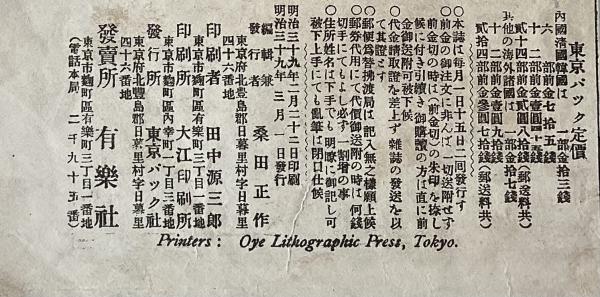 東京パック定價
內國淸國韓國は　一部金拾三錢
六　部前金七拾五錢
十二部前金壹圓四十五錢
貳十四部前金貳圓八拾錢（郵送料共）
其他の海外諸國は　一部金拾七錢
十二部前金壹圓九拾錢
貳拾四部前金參圓七拾錢（郵送料共）
〇本誌は每月一日十五日二回發行す
〇前金の御注文に非んば一切送附せず
前金切の時は（前金切）の朱印を捺し
候に付き引續き御購讀の方は直に前
金御送附可被下候
〇代金請取證を差上ず雜誌の發送を以
て其證とす
〇郵便爲替拂渡局は記入無之樣願上候
〇郵券代用にて代價御送附の時は何錢
切手にてもよし必ず一割增の事
〇住所姓名は下手でも明瞭に御記し可
被下上手にても亂筆は閉口仕候
明治三十九年二月二十二日印刷
明治三十九年三月一日發行
編輯兼
發行者　桑田正作
東京府北豊島郡日暮里村字日暮里
四十六番地
印刷者　田中源三郎
東京市麴町區有樂町三丁目一番地
印刷所　大江印刷所
東京市麴町區內幸町一丁目三番地
發行所　東京パック社
東京府北豊島郡日暮里村字日暮里
四十六番地
發賣所　有樂社
東京市麴町區有樂町三丁目一番地
（電話本局　二千九十五番）
Printers: Oye Lithographic Press, Tokyo.